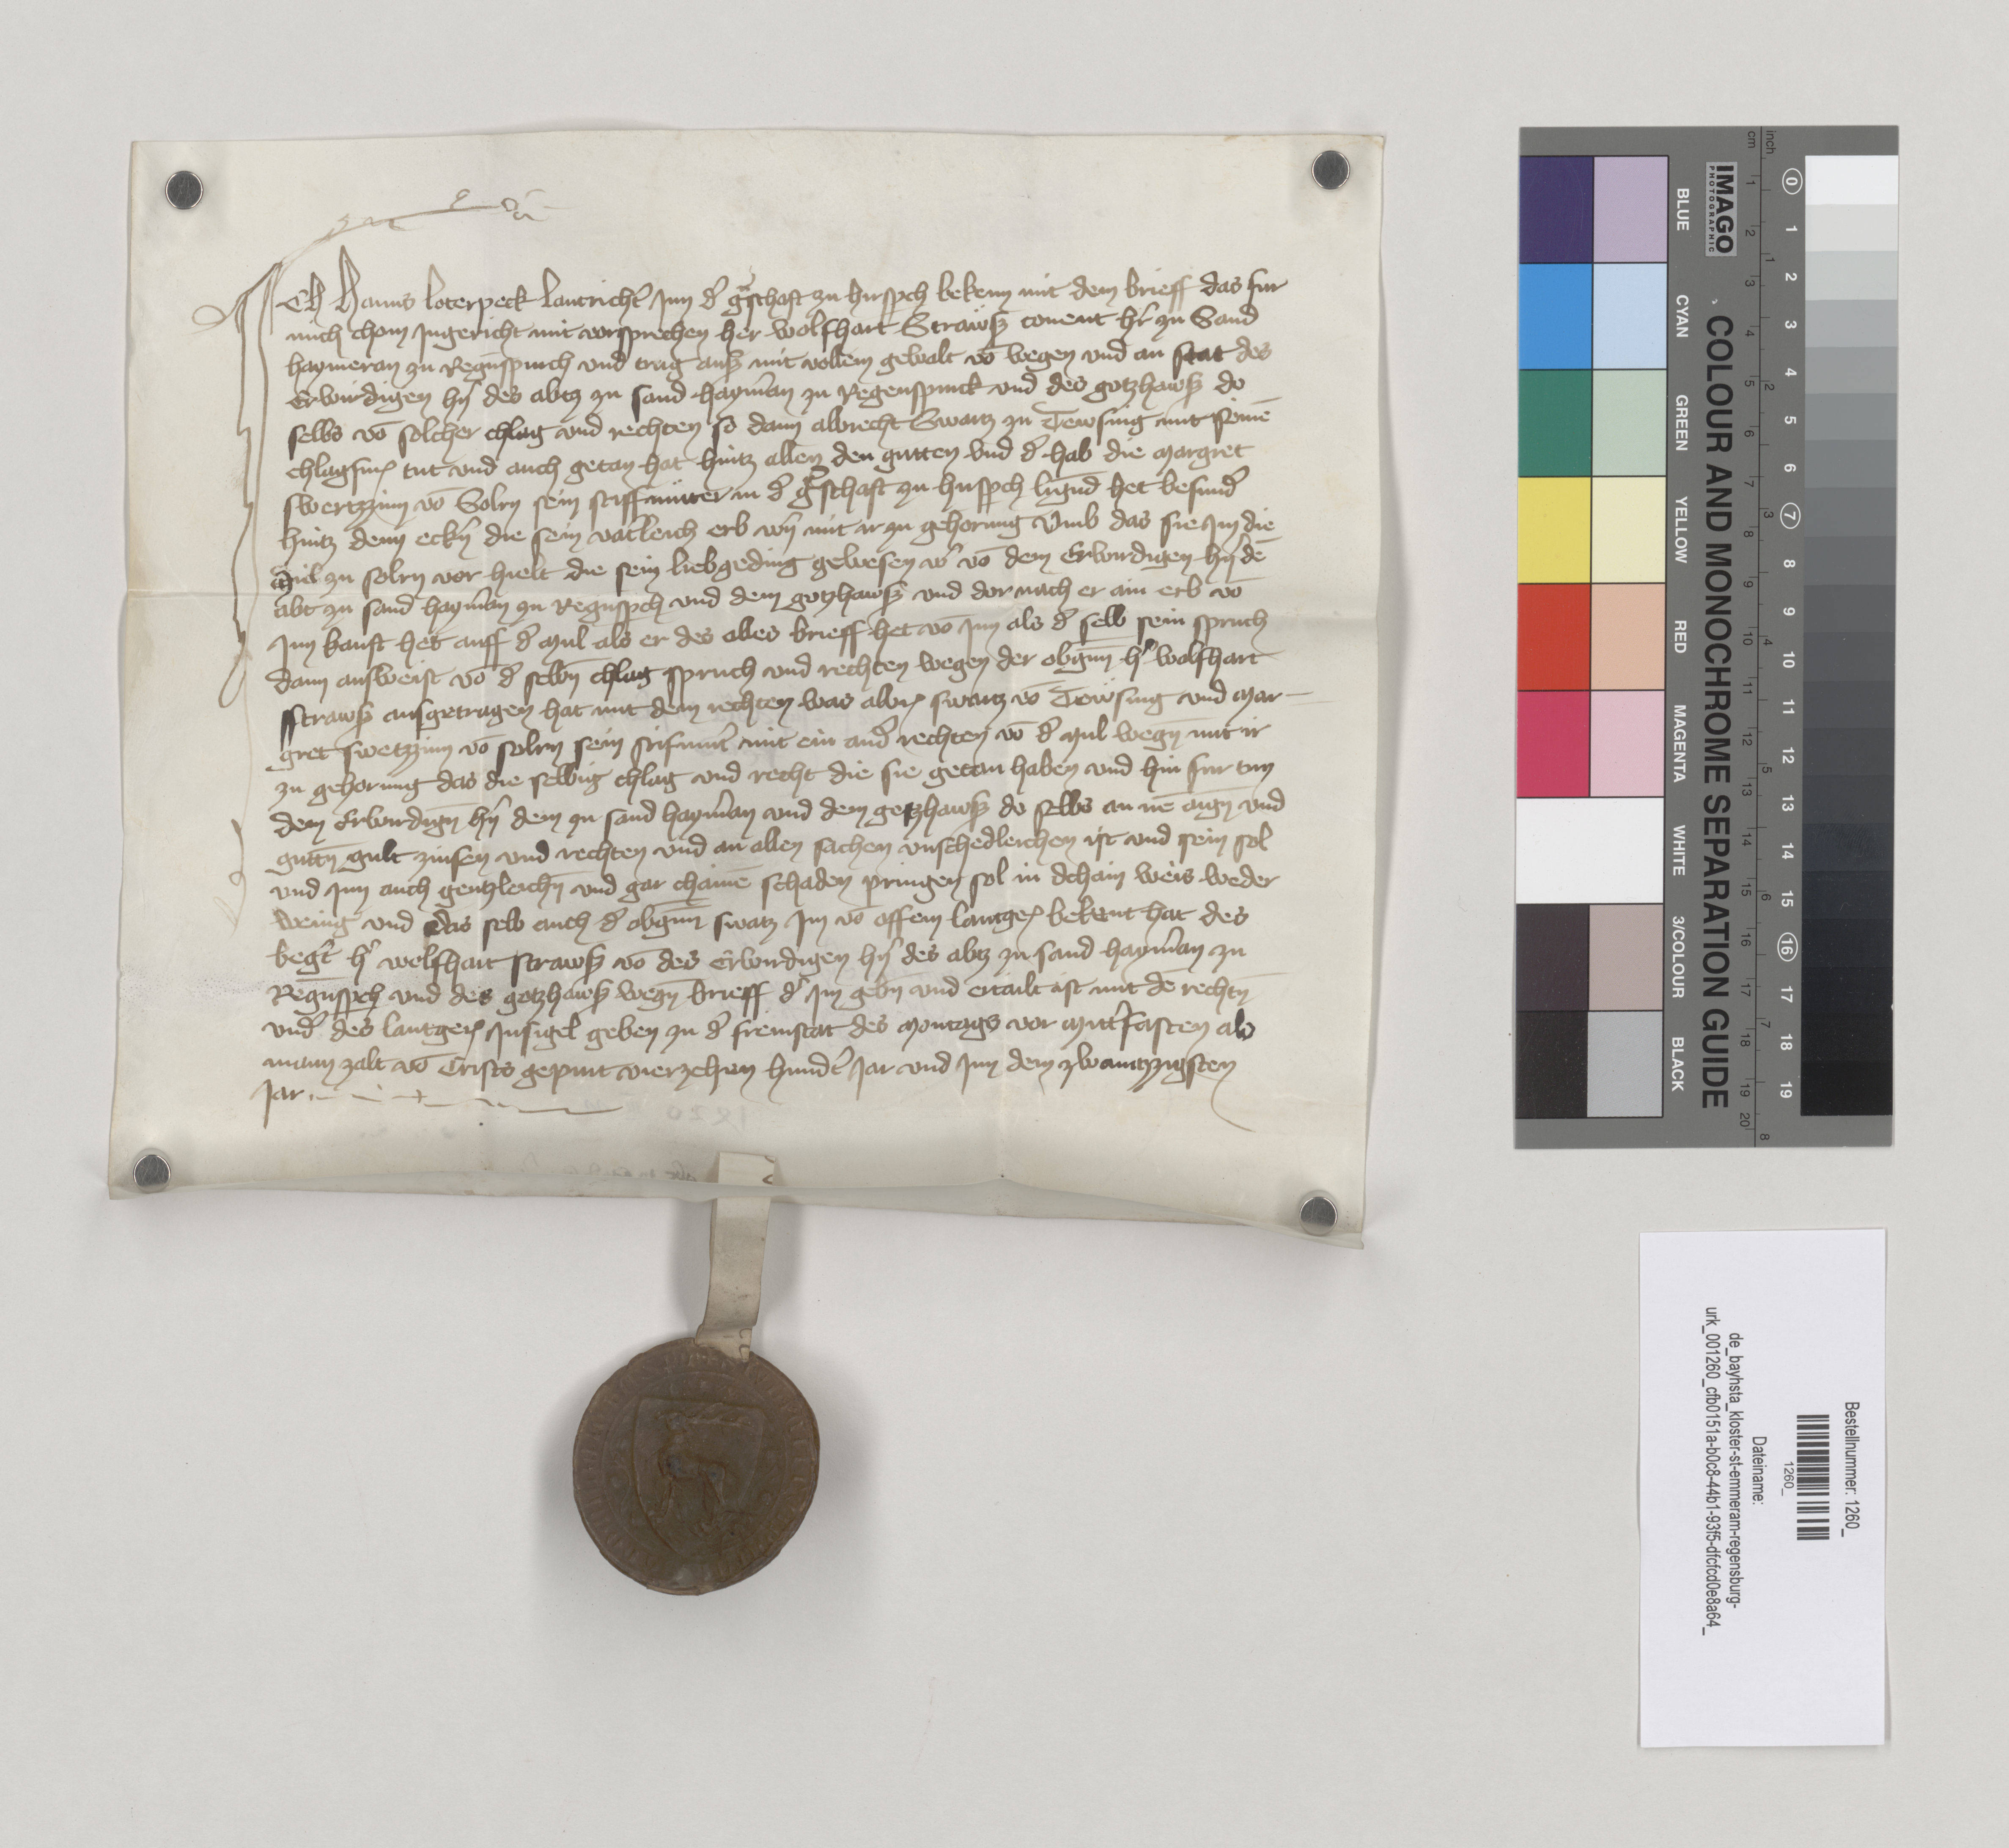 Ich Hanns loterpeck lantricht̄ Inn d̄ ḡschaft zu hirsp̄ch bekenn mit dem brieff das fur
mich chom Ingericht mit vorsprechen her wolfhart Strawß conent hr̄ zu Sand
haymeran zu Regn̄spurch vnd trug auß mit vollem gewalt vō wegen vnd an stat des
Erwirdigen hn̄ des abtz zu sand haym̄an zu Regenspurck vnd des gotzhawß do
selbs vō solcher chlag vnd rechten so dann albrecht Swartz zu Tewsing mit seinē
chlagfur̄ tut vnd auch getan hat hintz allen den gutten vnd d̄ hab die margret
swertzzinn vō Solrn sein stiffmuter in d̄ ḡschaft zu hirsp̄ch lign̄d het besund̄
hintz denn eckn̄ die sein vat̄leich erb wn̄ mit ir zu gehorung vmb das sie Im die
mul zu solrn vor hielt die sein liebgeding gewesen w̄ vō dem Erwirdigen hn̄ dē
abt zu sand haym̄an zu Regn̄sp̄ch vnd dem gotzhawß vnd dor nach er ain erb vō
Im kauft het auff d̄ mul als er des alles brieff het vō Im als d̄ selb sein spruch
dann ausweist vō d̄ selbn̄ chlag spruch vnd rechten wegen der obgnn̄ h̄ wolfhart
strawß ausgetragen hat mit dem rechten was albr̄ swartz vō Tewsing vnd mar-
gret swertzzinn vō solrn sein stifmut̄ mit ein and̄ rechten vō d̄ mul wegn̄ mit ir
zu gehorung das die selbig chlag vnd recht die sie getan haben vnd hin fur tun
dem Erwirdign̄ hn̄ dem zu sand haym̄an vnd dem gotzhawß do selbs an irē aign̄ vnd
guttn̄ gult zinsen vnd rechten vnd an allen sachen vnschedleichen ist vnd sein sol
vnd Im auch gentzleichn̄ vnd gar chainē schaden pringen sol in dchain weis weder
wenig vnd das selb auch d̄ obgnn̄ swartz Im vō offem lantger̄ bekent hat des
beḡt h̄ wolfhart strawß vō des Erwirdigen hn̄ des abtz zu sand haym̄an zu
Regn̄sp̄ch vnd des gotzhawß wegn̄ brieff d̄ Im gebn̄ vnd ertailt ist mit dē rechtn̄
vnd̄ des lantger̄ Insigel geben zu d̄ freinstat des Montags vor mitt̄fasten als
mann zalt vō Crists gepurt vierzehen hund̄t Jar vnd Inn dem zwantzzigsten
Jar
IMAGO
PHOTOGRAPHIC
COLOUR AND MONOCHROME SEPARATION GUIDE
cm
inch
BLUE
CYAN
GREEN
YELLOW
RED
MAGENTA
WHITE
3/COLOUR
BLACK
0 1 2 3 4 5 6 7 8 9 10 11 12 13 14 15 16 17 18 19
1 2 3 4 5 6 7 8 9 10 11 12 13 14 15 16 17 18 19 20
1 2 3 4 5 6 7 8
Bestellnummer: 1260_
1260_
Dateiname:
de_bayhsta_kloster-st-emmeram-regensburg-
urk_001260_cfb0151a-b0c8-44b1-93f5-dfcfcd0e8a64_